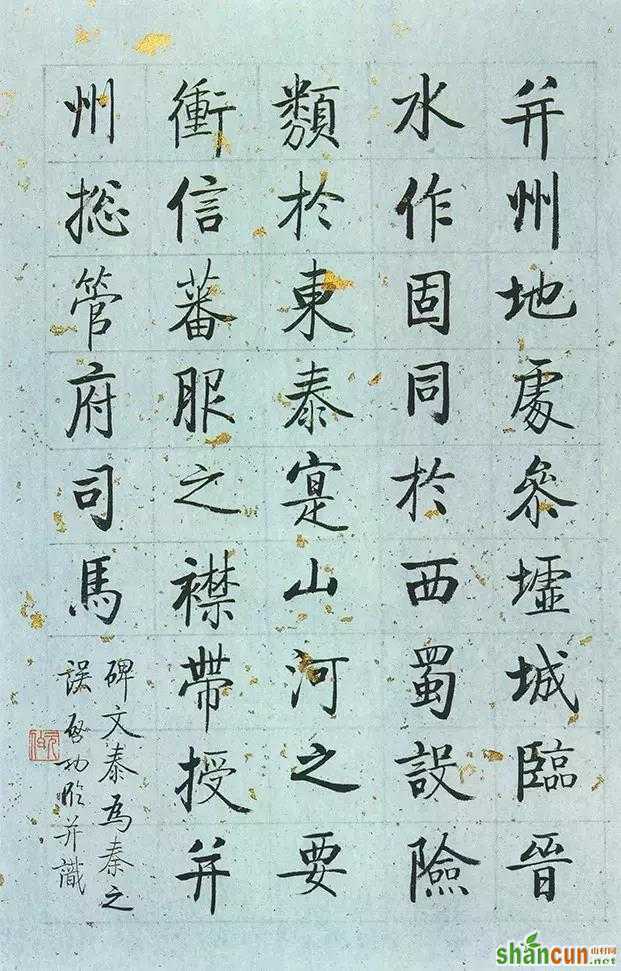 并州地處叅墟城臨晉
水作固同於西蜀設險
類於東泰寔山河之要
衝信蕃服之襟帶授并
州揔管府司馬
碑文泰為秦之
誤啓功臨并識
元白
shancun
山村网
.net